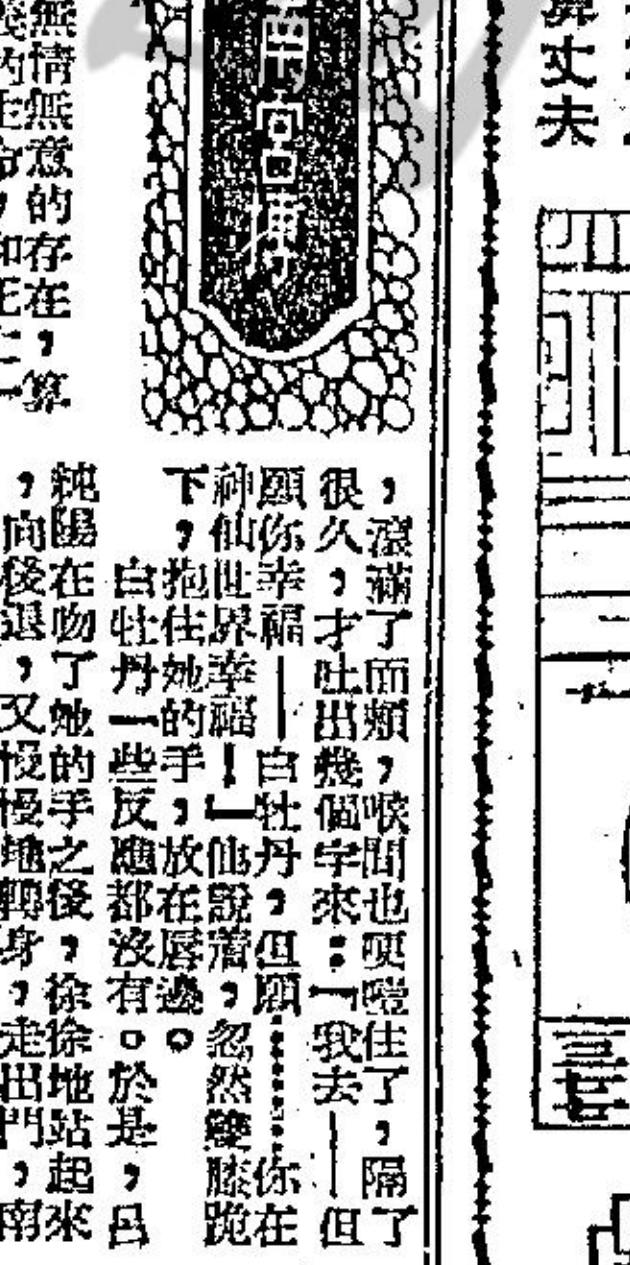 ，滾滿了面頰，喉間也哽噎住了，隔了
很久，才吐出幾個字來：「我去——但
願你幸福——白牡丹，但願………你在
神仙世界幸福！」他說着，忽然雙膝跪
下，抱住她的手，放在唇邊。
白牡丹一些反應都沒有。於是，呂
純陽在吻了她的手之後，徐徐地站起來
，向後退，又慢慢地轉身，走出門，南
無情無意的存在，算
丈夫